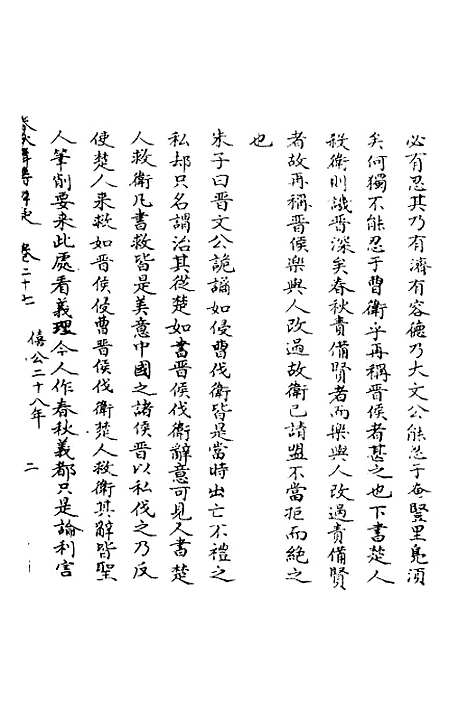 必有忍其乃有濟有容德乃大文公能忍于奄豎里鳧須
矣何獨不能忍于曹衛乎再稱晉侯者甚之也下書楚人
救衛則譏晉深矣春秋責備賢者而樂與人改過責備賢
者故再稱晉侯樂與人改過故衛已請盟不當拒而絶之
也
朱子曰晉文公詭譎如侵曹伐衛皆是當時出亡不禮之
私却只名謂治其從楚如書晉侯伐衛辭意可見又書楚
人救衛凡書救皆是美意中國之諸侯晉以私伐之乃反
使楚人來救如晉侯侵曹晉侯伐衛楚人救衛其辭皆聖
人筆削要來此處看義理今人作春秋義都只是論利害
卷二十七 僖公二十八年 二